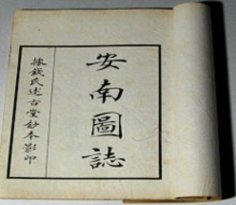 安南圖誌
據錢氏述古堂鈔本影印